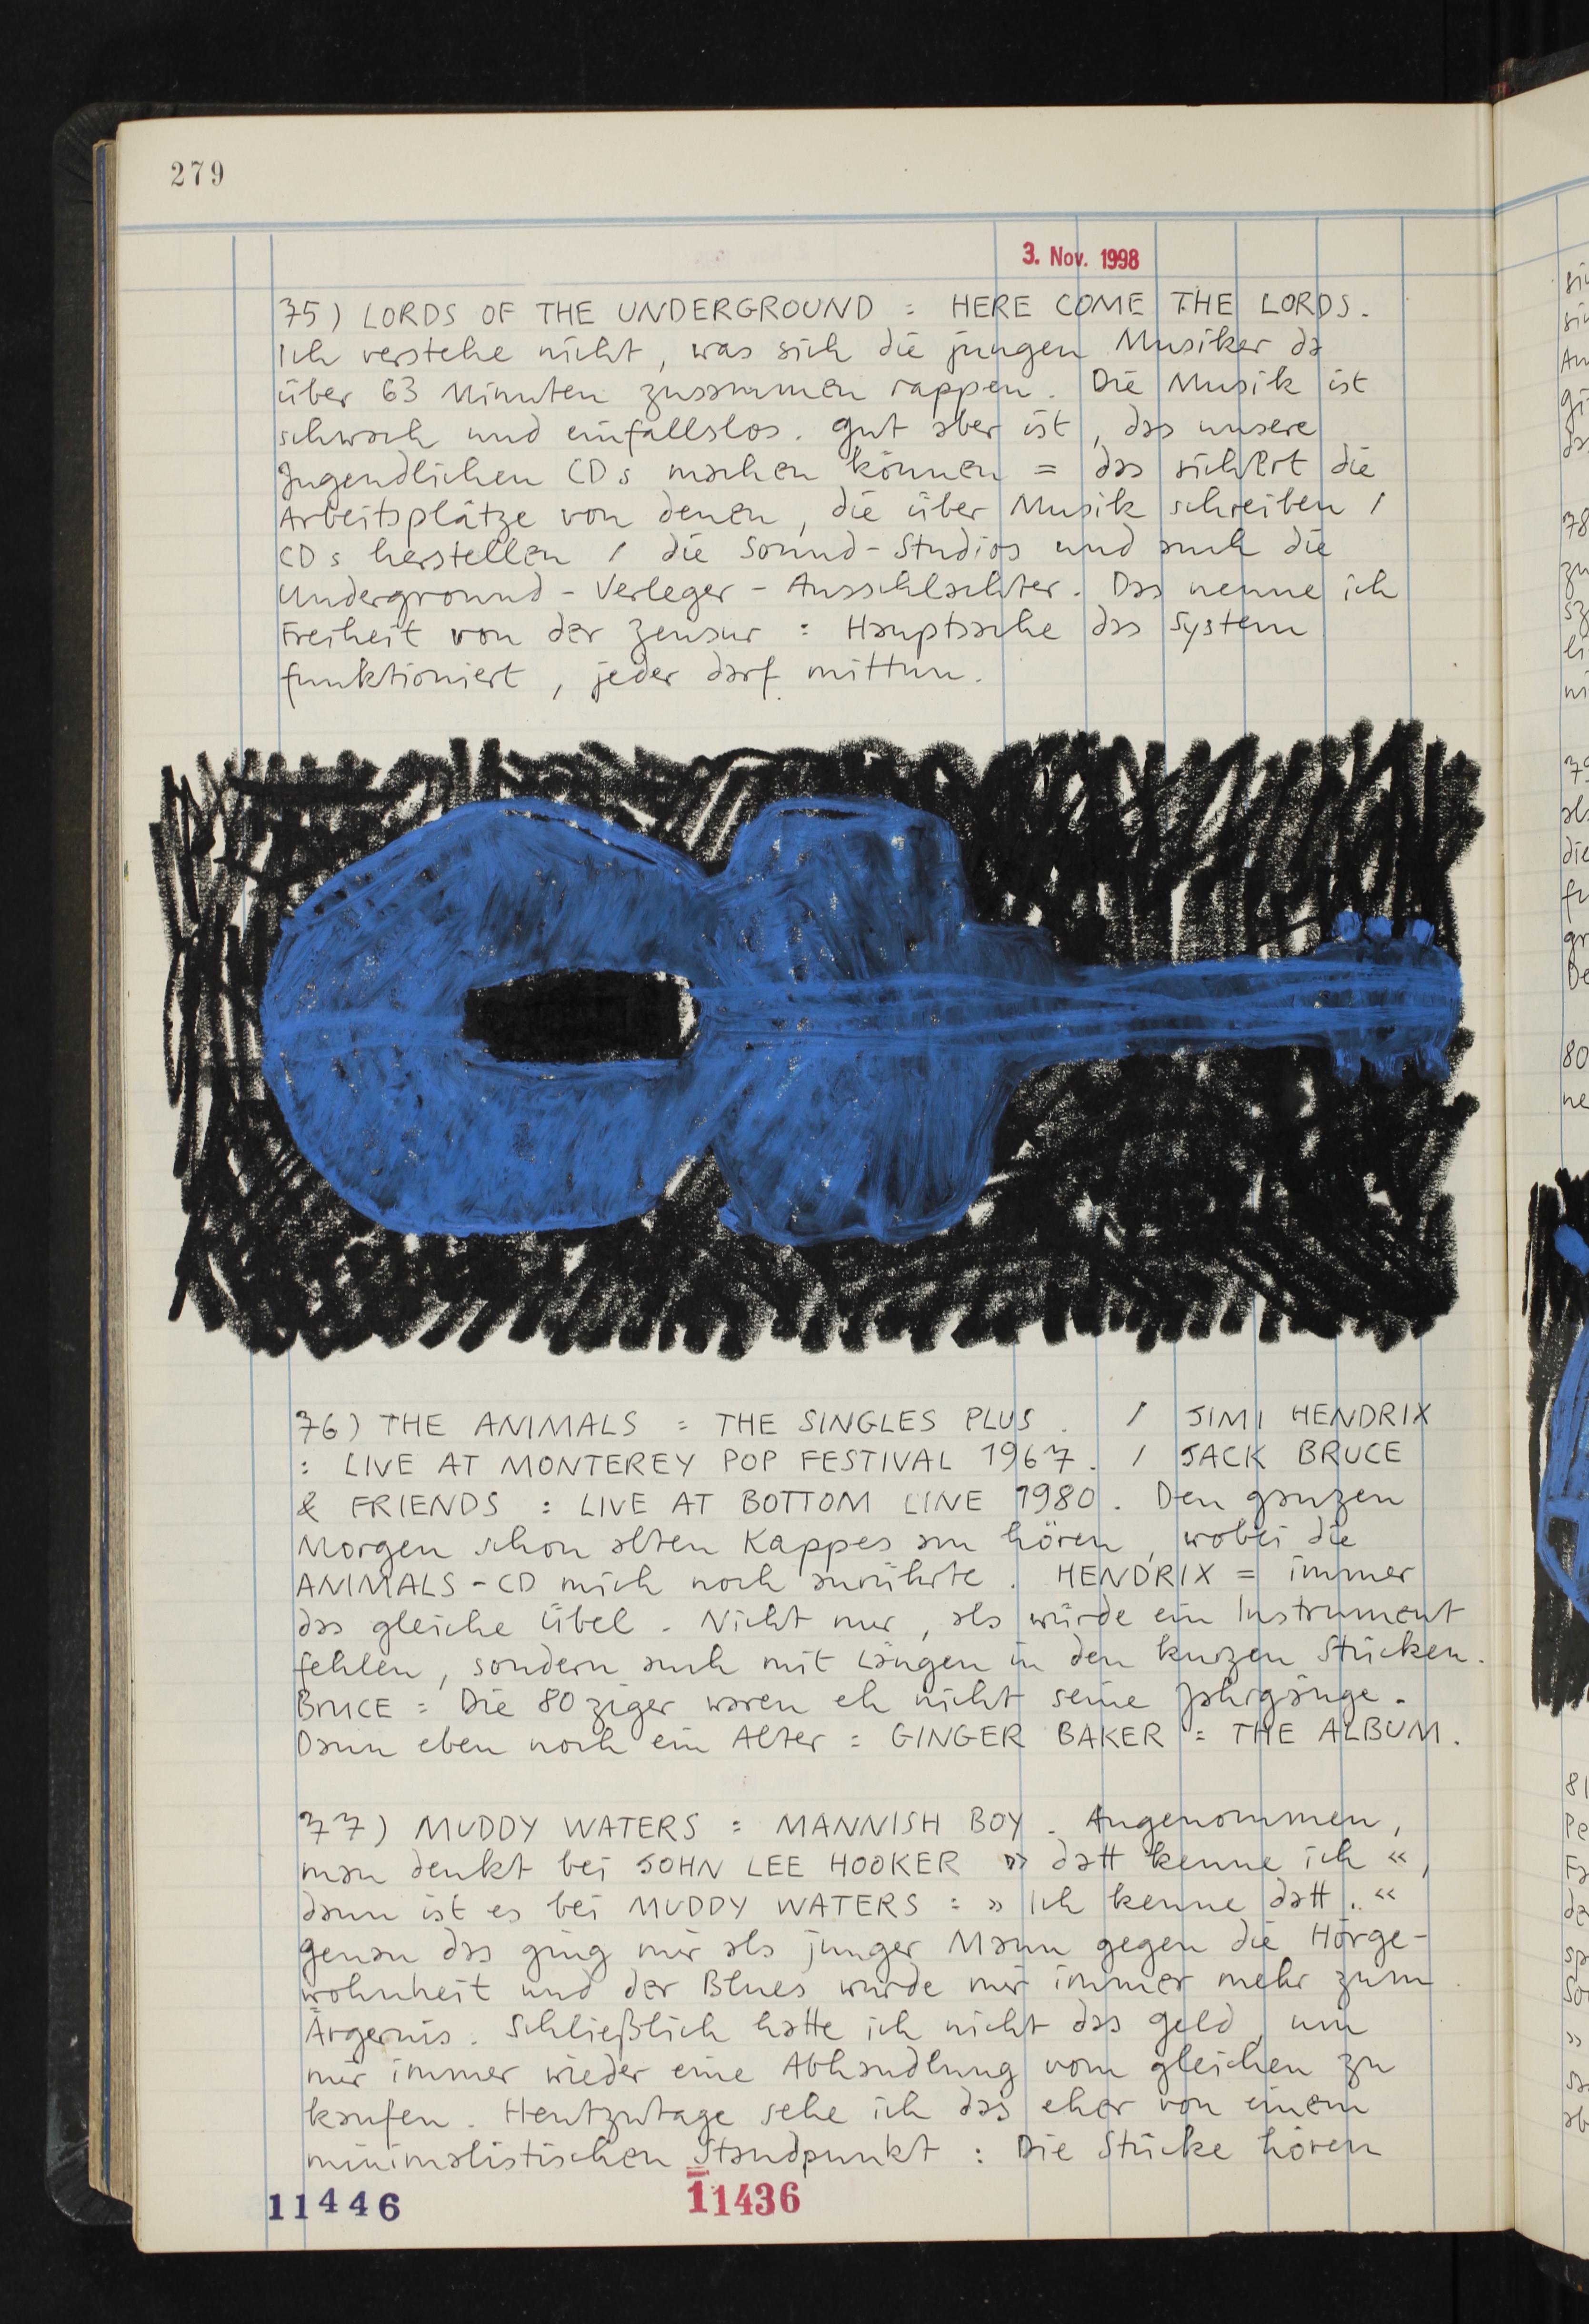 279
3. Nov. 1998
75) LORDS OF THE UNDERGROUND : HERE COME THE LORDS.
Ich verstehe nicht, was sich die jungen Musiker da
über 63 Minuten zusammen rappen. Die Musik ist
schwach und einfallslos. Gut aber ist, das unsere
Jugendlichen CDs machen können = das sichert die
Arbeitsplätze von denen, die über Musik schreiben /
CDs herstellen / die Sound-Studios und auch die
Underground-Verleger-Ausschlachter. Das nenne ich
Freiheit von der Zensur : Hauptsache das System
funktioniert, jeder darf mittun.
76) THE ANIMALS : THE SINGLES PLUS. / JIMI HENDRIX
: LIVE AT MONTEREY POP FESTIVAL 1967. / JACK BRUCE
& FRIENDS : LIVE AT BOTTOM LINE 1980. Den ganzen
Morgen schon alten Kappes am hören, wobei die
ANIMALS-CD mich noch anrührte. HENDRIX = immer
das gleiche Übel. Nicht nur, als würde ein Instrument
fehlen, sondern auch mit Längen in den kurzen Stücken.
BRUCE : Die 80ziger waren eh nicht seine Jahrgänge.
Dann eben noch ein Alter : GINGER BAKER : THE ALBUM.
77) MUDDY WATERS : MANNISH BOY. Angenommen,
man denkt bei JOHN LEE HOOKER »datt kenne ich«,
dann ist es bei MUDDY WATERS : »Ich kenne datt.«
Genau das ging mir als junger Mann gegen die Hörge-
wohnheit und der Blues wurde mir immer mehr zum
Ärgernis. Schließlich hatte ich nicht das Geld, um
mir immer wieder eine Abhandlung vom gleichen zu
kaufen. Heutzutage sehe ich das eher von einem
minimalistischen Standpunkt : Die Stücke hören
11446
11436